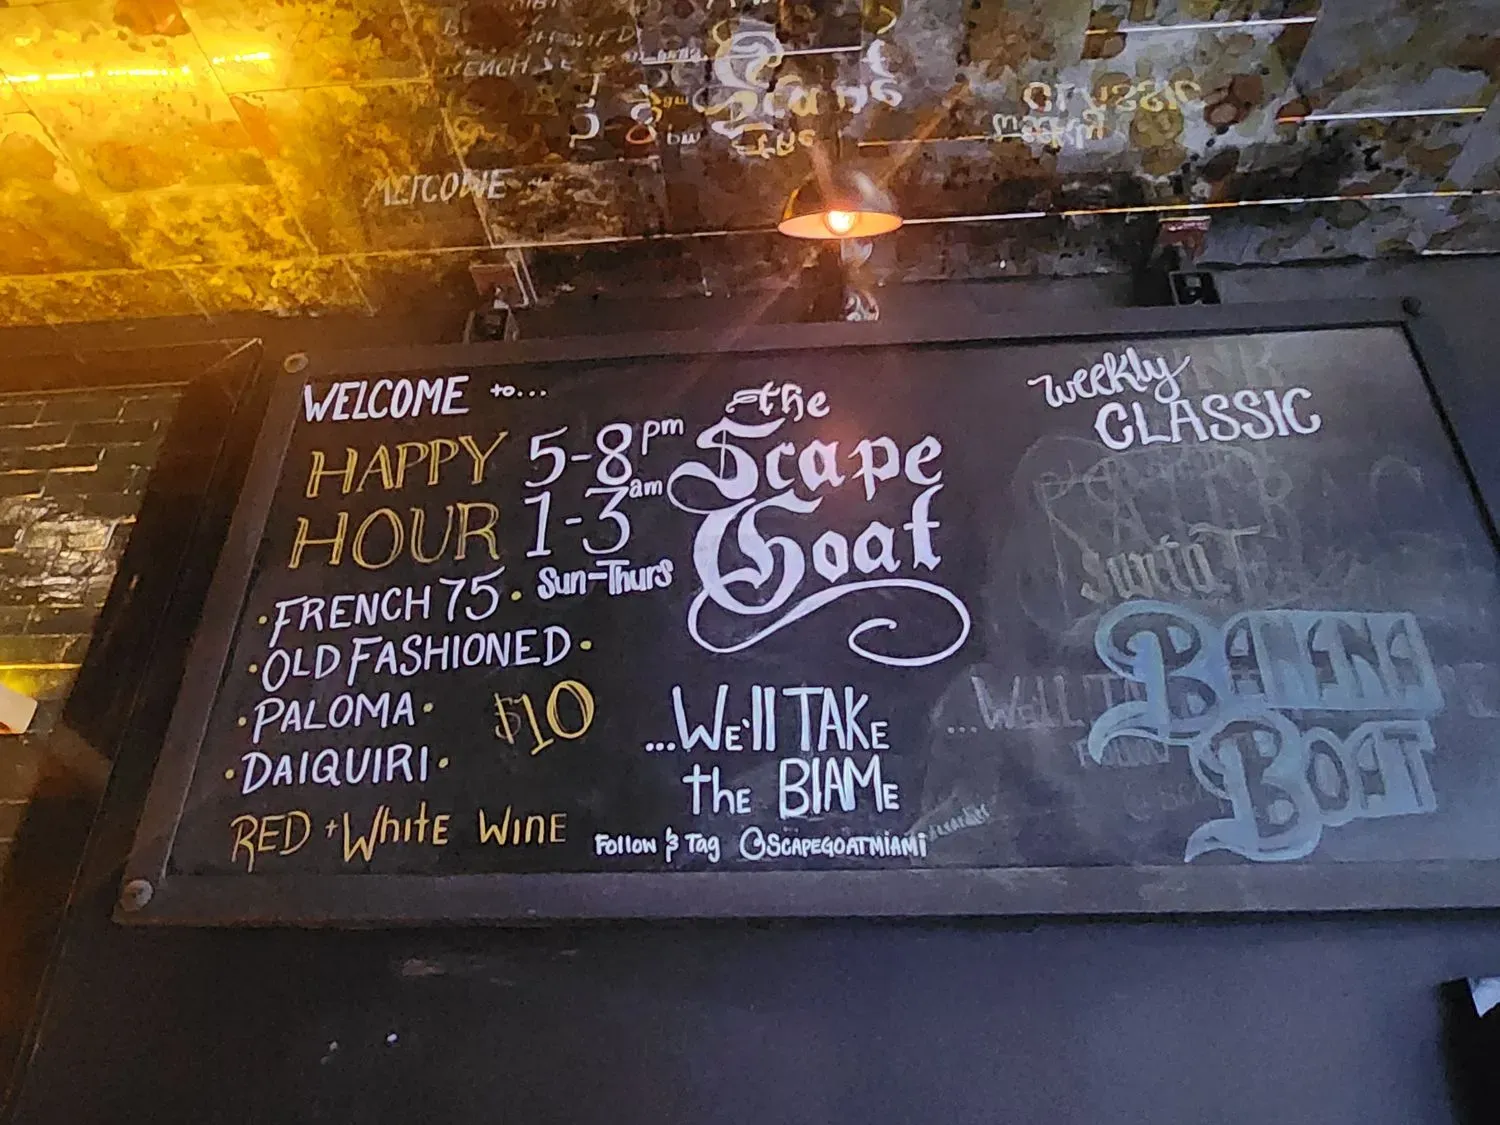 WELCOME to...
HAPPY HOUR
5-8pm
1-3am
Sun-Thurs
• FRENCH 75 •
• OLD FASHIONED •
• PALOMA •
• DAIQUIRI •
$10
RED + White WINE
the
Scape
Goat
...We'll TAKE
the BlAME
Follow & Tag @SCAPEGOATMIAMI
weekly
CLASSIC
BANANA
BOAT